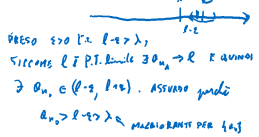 λ
l-ε
PRESO ε>0 T.C. l-ε > λ,
SICCOME l È P.T. limite ∃ a_{n_k} → l E QUINDI
∃ a_{n_0} ∈ (l-ε, l+ε). ASSURDO perché
a_{n_0} > l-ε > λ ← MAGGIORANTE PER {a_n}